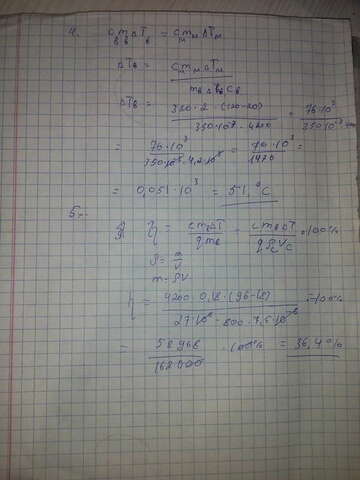 4. c_в m_в ΔT_в = c_м m_м ΔT_м
ΔT_в = c_м m_м ΔT_м / m_в c_в
ΔT_в = 380·2·(120-20) / 350·10⁻³·4200 = 76·10³ / 350·10⁻³
= 76·10³ / 350·10⁻³·4,2·10³ = 76·10³ / 1470 =
= 0,051·10³ = 51, °C
5.
η = cmΔT / qm_c = cmΔT / qρ_cV_c · 100%
ρ = m/V
m = ρV
η = 4200·0,18·(96-18) / 27·10⁶·800·7,5·10⁻⁶ · 100%
= 58968 / 162000 · 100% = 36,4%